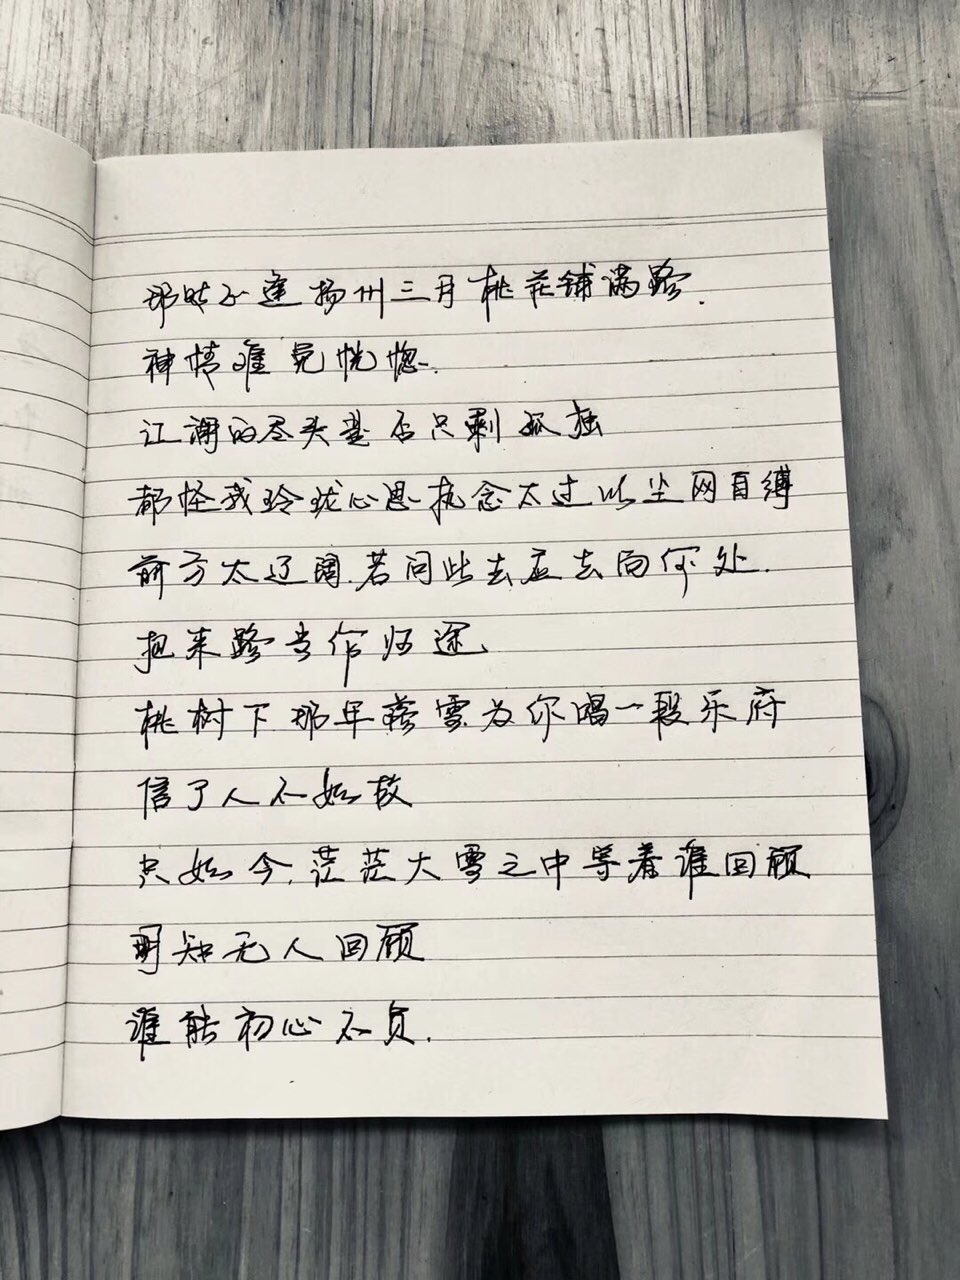 那时正逢扬州三月桃花铺满路.
神情难免恍惚.
江湖的尽头是否只剩孤独
都怪我玲珑心思执念太过以尘网自缚
前方太辽阔.若问此去应去向何处.
把来路当作归途、
桃树下那年落雪为你唱一段乐府
信了人不如故
只如今.茫茫大雪之中等着谁回顾
明知无人回顾
谁能初心不负.